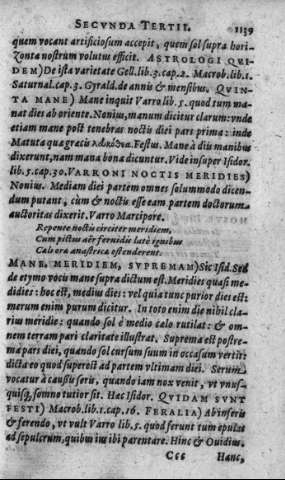 SECVNDA TERTII. 1139
quem vocant artificiosum accepit, quem sol supra hori-
Zonta nostrum volutus efficit. ASTROLOGI QVI-
DEM) De ista varietate Gell. lib. 3. cap. 2. Macrob. lib. 1.
Saturnal. cap. 3. Gyrald. de annis & mensibus. QVIN-
TA MANE) Mane inquit Varro lib. 5. quod tum ma-
nat dies ab oriente. Nonius, manum dicitur clarum: vnde
etiam mane post tenebras noctis diei pars prima: inde
Matuta quæ græcis λευκοθέα. Festus. Mane à diis manibus
dixerunt, nam mana bona dicuntur. Vide insuper Isidor.
lib. 5. cap. 30. VARRONI NOCTIS MERIDIES)
Nonius. Mediam diei partem omnes solummodo dicen-
dum putant, cùm & noctis esse eam partem doctorum
auctoritas dixerit. Varro Marcipore.
Repente noctis circiter meridiem,
Cum pictus aër fernidis latè ignibus
Cæli oræ anastricæ ostenderent.
MANE, MERIDIEM, SVPREMAM) Sic Isid. Sed
de etymo vocis mane supra dictum est. Meridies quasi me-
didies: hoc est, medius dies: vel quia tunc purior dies est:
merum enim purum dicitur. In toto enim die nihil cla-
rius meridie: quando sol è medio cælo rutilat: & om-
nem terram pari claritate illustrat. Suprema est postre-
ma pars diei, quando sol cursum suum in occasum vertit:
dicta eo quod superest ad partem vltimam diei. Serum
vocatur à clausis seris, quando iam nox venit, vt vnus-
quisq; somno tutior sit. Hæc Isidor. QVIDAM SVNT
FESTI) Macrob. lib. 1. cap. 16. FERALIA) Ab inferis
& ferendo, vt vult Varro lib. 5. quod ferunt tum epulas
ad sepulcrum, quibus ius ibi parentare. Hinc & Ouidius,
Ccc Hanc,